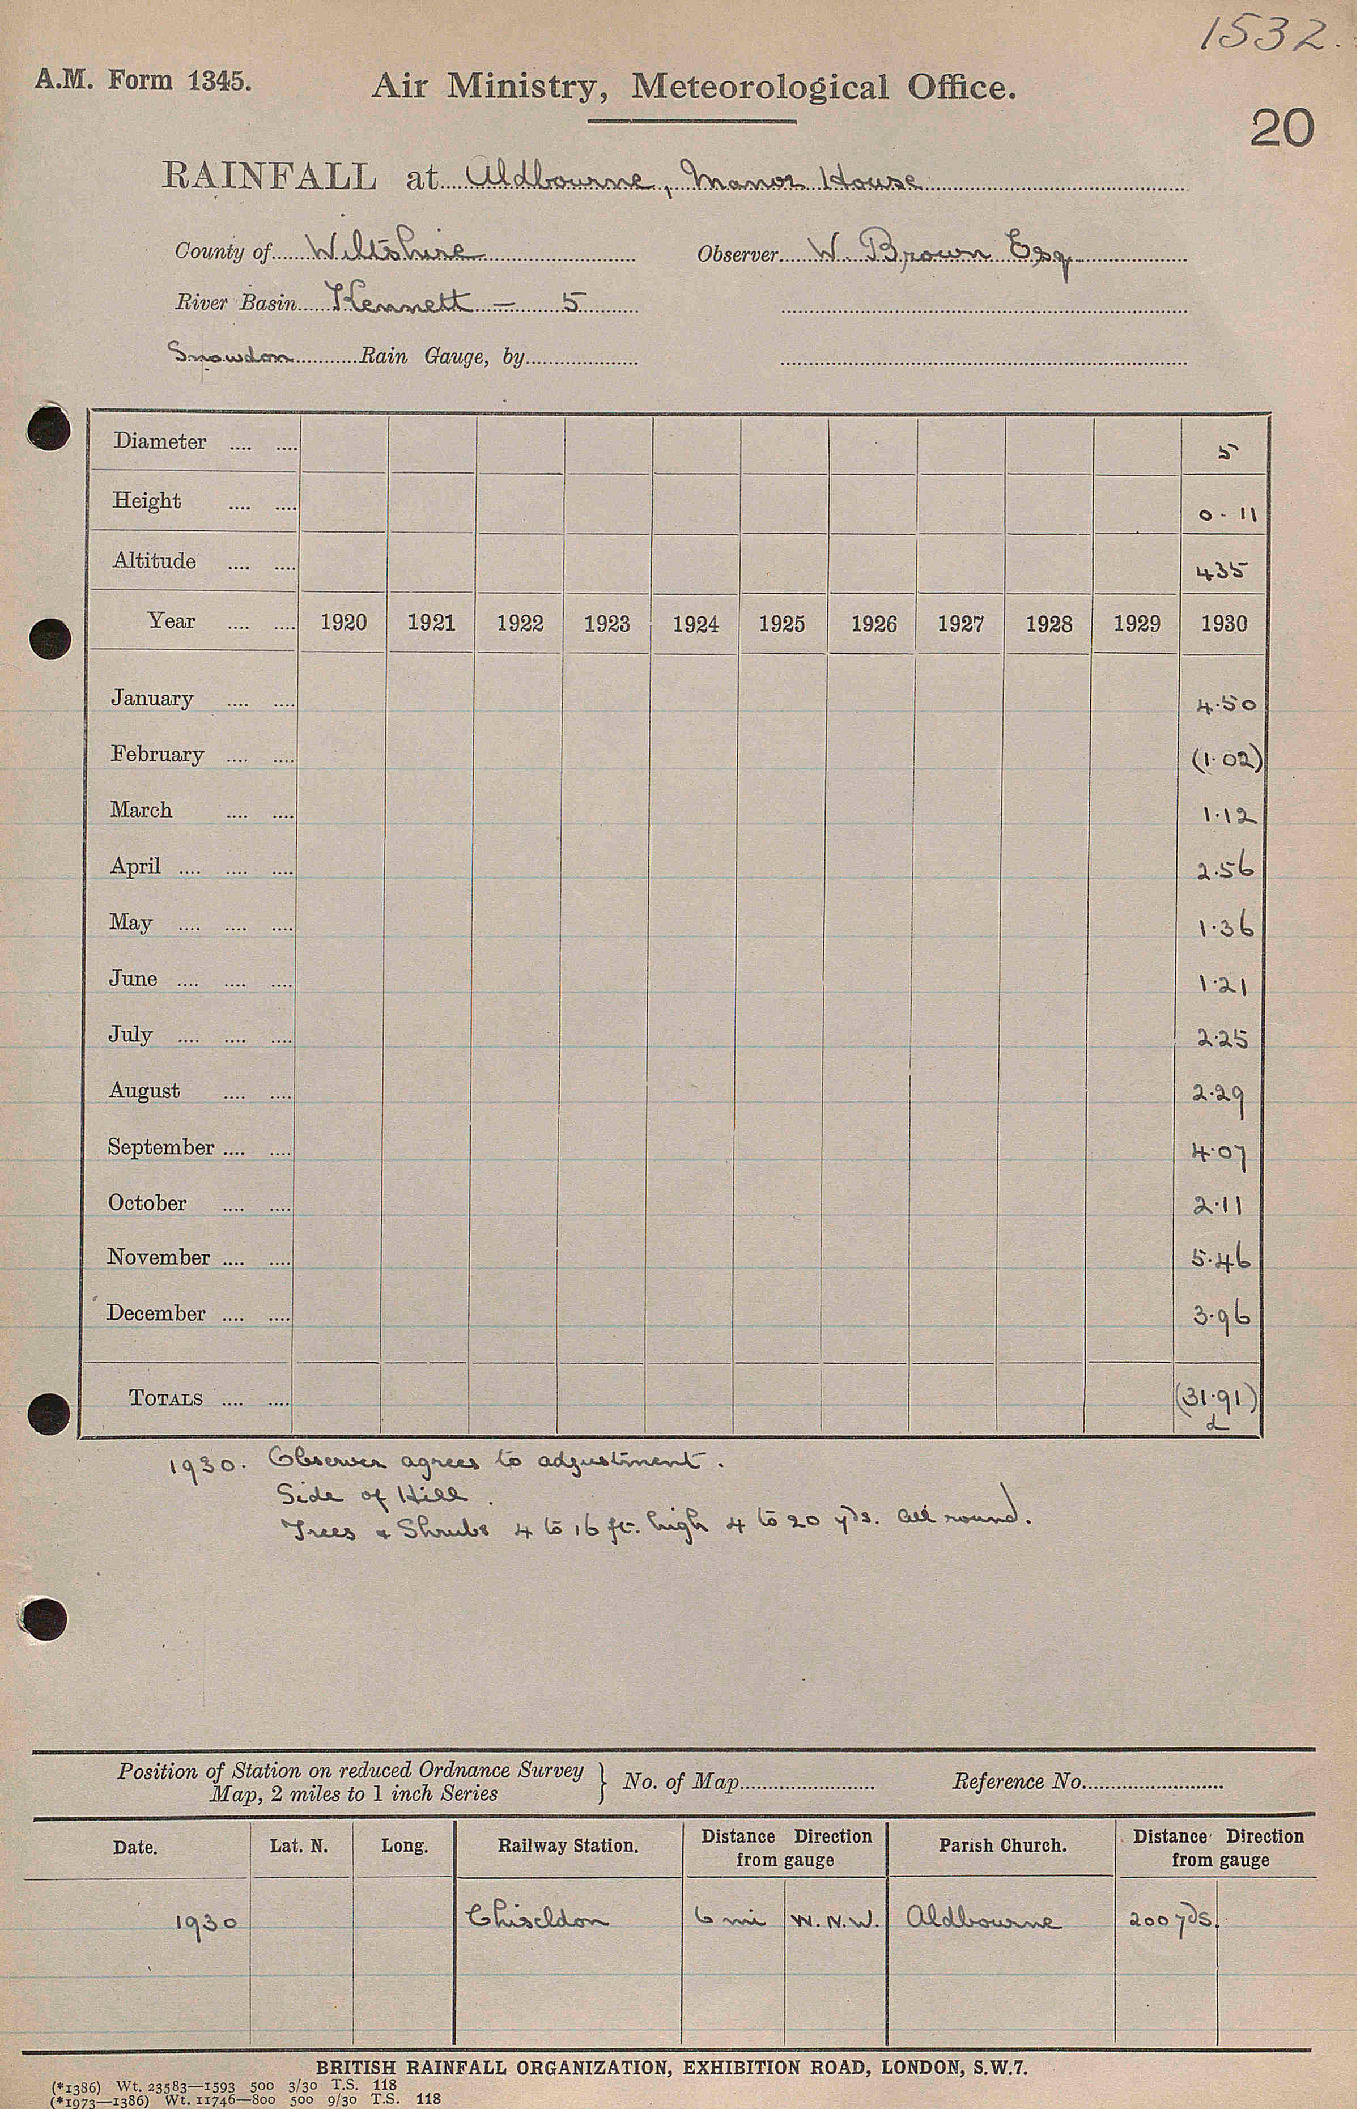 1532.
A.M. Form 1345. Air Ministry, Meteorological Office.
20
RAINFALL at Aldbourne, Manor House
County of Wiltshire Observer W. Brown Esq
River Basin Kennett — 5
Snowdon Rain Gauge, by
Diameter .... .... 5
Height .... .... 0-11
Altitude .... .... 435
Year .... .... 1920 1921 1922 1923 1924 1925 1926 1927 1928 1929 1930
January .... .... 4.50
February .... .... (1.02)
March .... .... 1.12
April .... .... .... 2.56
May .... .... .... 1.36
June .... .... .... 1.21
July .... .... .... 2.25
August .... .... 2.29
September .... .... 4.07
October .... .... 2.11
November .... .... 5.46
December .... .... 3.96
TOTALS .... .... (31.91)
d
1930. Observer agrees to adjustment.
Side of Hill.
Trees & Shrubs 4 to 16 ft. high 4 to 20 yds. all round.
Position of Station on reduced Ordnance Survey
Map, 2 miles to 1 inch Series } No. of Map Reference No.
Date. Lat. N. Long. Railway Station. Distance Direction from gauge Parish Church. Distance Direction from gauge
1930 Chiseldon 6 mi W.N.W. Aldbourne 200 yds.
BRITISH RAINFALL ORGANIZATION, EXHIBITION ROAD, LONDON, S.W.7.
(*1386) Wt. 23583—1593 500 3/30 T.S. 118
(*1973—1386) Wt. 11746—800 500 9/30 T.S. 118